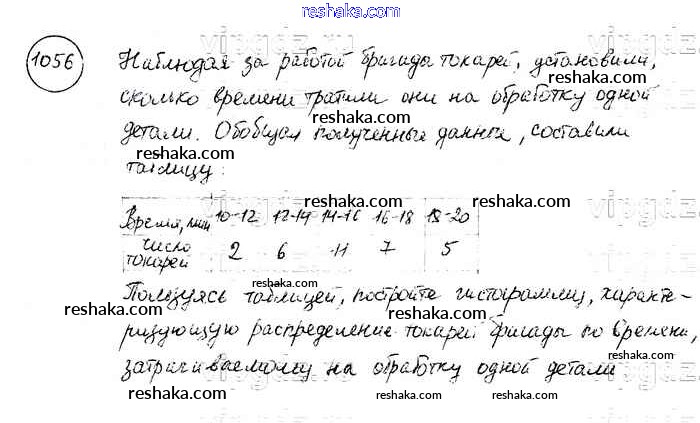 reshaka.com
1056
Наблюдая за работой бригады токарей, установили,
reshaka.com
сколько времени тратили они на обработку одной
reshaka.com
детали. Обобщая полученные данные, составили
reshaka.com
таблицу:
reshaka.com
Время, мин 10-12 12-14 14-16 16-18 18-20
Число токарей 2 6 11 7 5
reshaka.com
Пользуясь таблицей, постройте гистограмму, характе-
reshaka.com
ризующую распределение токарей бригады по времени,
reshaka.com
затрачиваемому на обработку одной детали
reshaka.com
reshaka.com